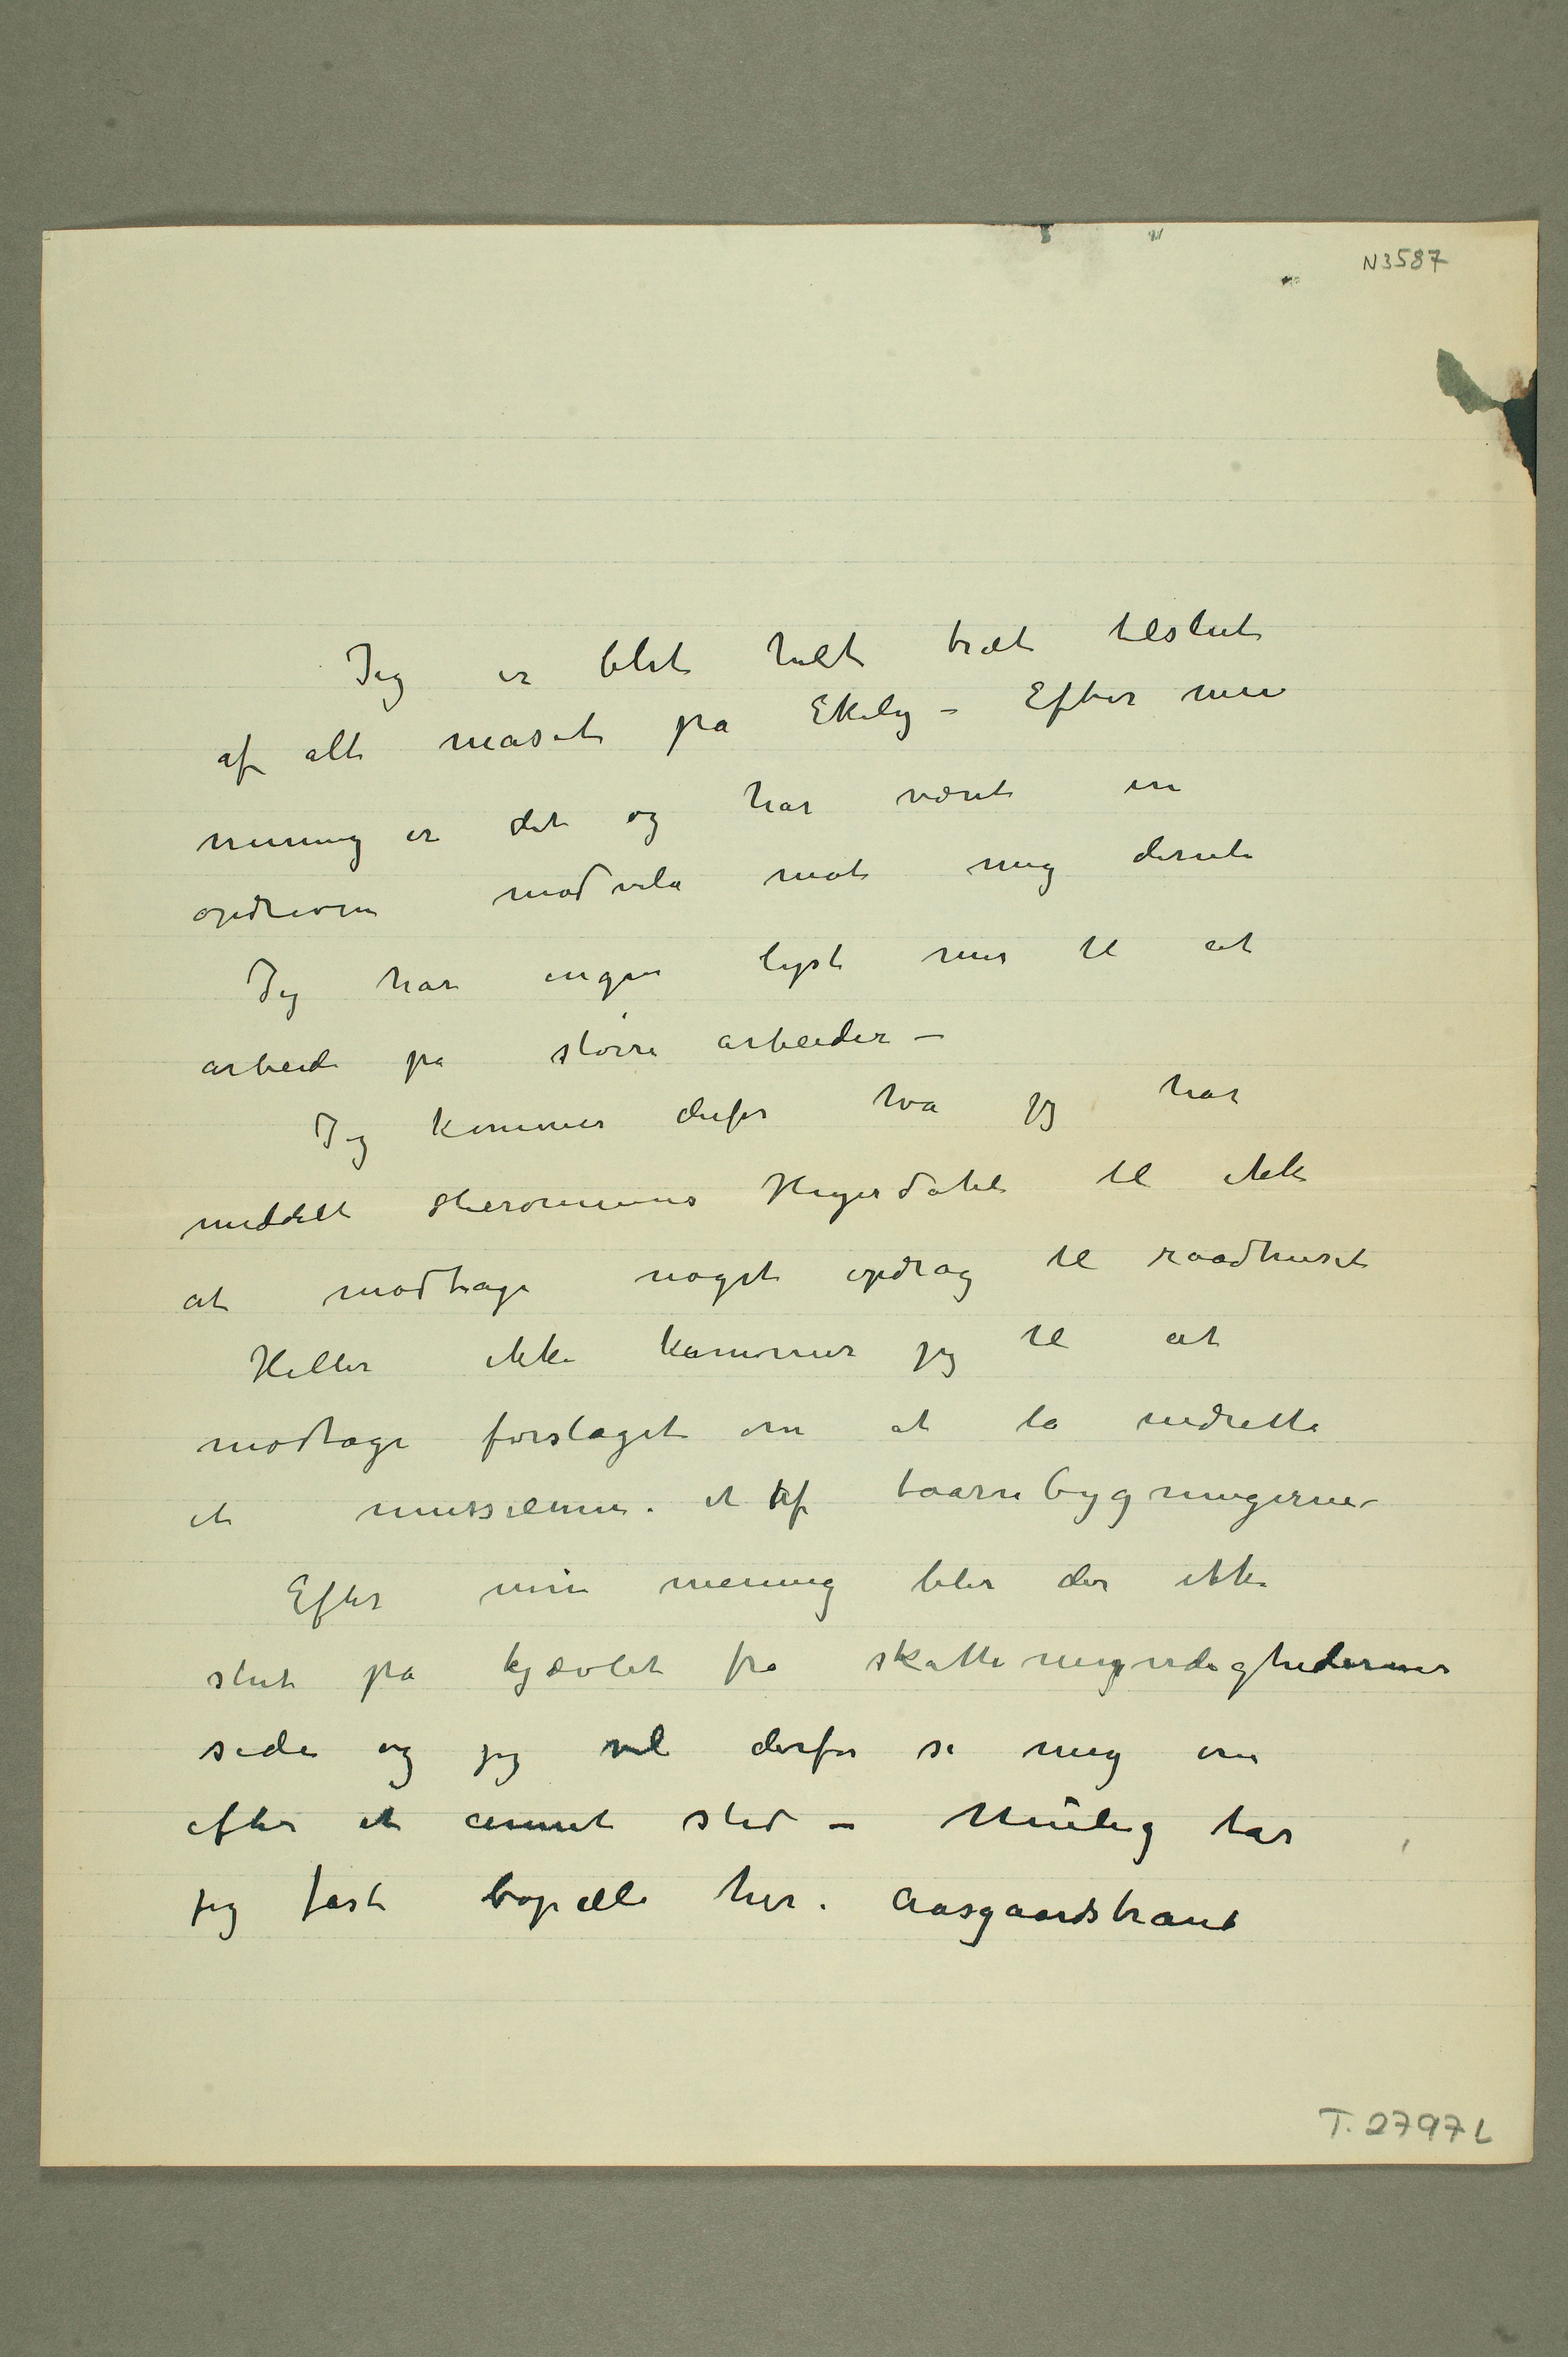 N3587
Jeg er blet helt træt tilslut
af alt maset på Ekely – Efter min
mening er det og har været en
opdreven modvilie mot mig derute
Jeg har ingen lyst mer til at
arbeide på større arbeider –
Jeg kommer derfor hva jeg har
meddelt Hieronimus Heyerdahl til ikke
at modtage noget opdrag til raadhuset
Heller ikke kommer jeg til at
modtage forslaget om at la indrette
et musseum i et af taarnbygningerne –
Efter min mening blir der ikke
slut på kjævlet fra skattemyndighedernes
side og jeg vil derfor se mig om
efter et annet sted – Mulig tar
jeg fast bopæl her i Aasgaardstrand
T. 2797 L